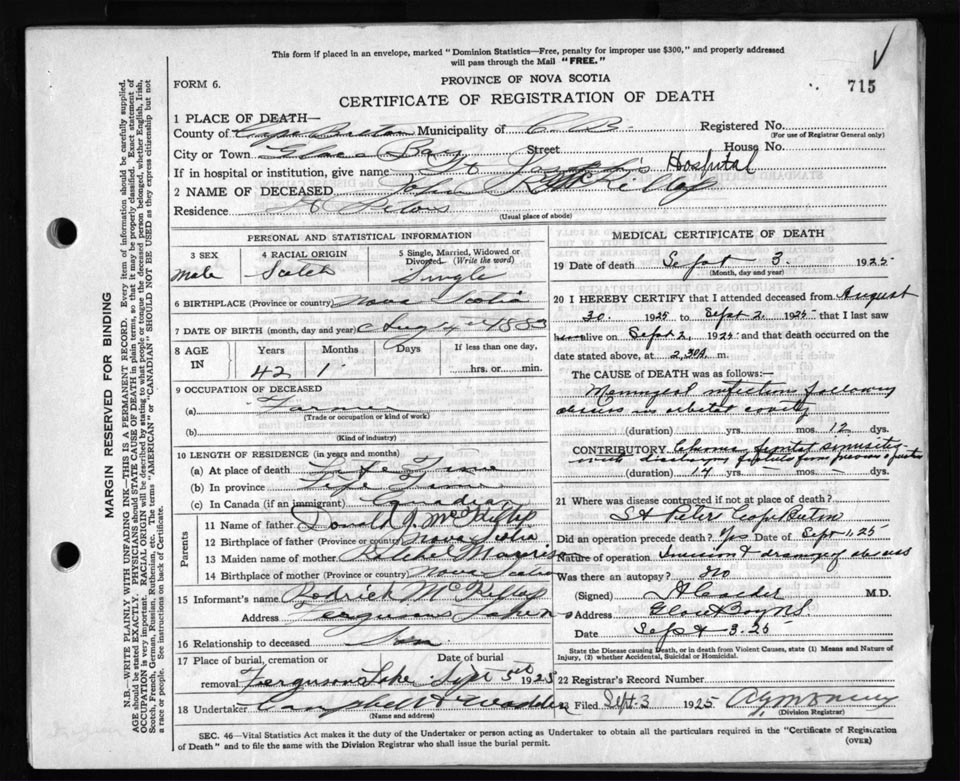 This form if placed in an envelope, marked "Dominion Statistics—Free, penalty for improper use $300," and properly addressed
will pass through the Mail "FREE."
FORM 6.
PROVINCE OF NOVA SCOTIA
715
CERTIFICATE OF REGISTRATION OF DEATH
1 PLACE OF DEATH—
County of Cape Breton Municipality of C. B. Registered No.
(For use of Registrar General only)
City or Town Glace Bay Street House No.
If in hospital or institution, give name St Joseph's Hospital
2 NAME OF DECEASED John
Residence St Peters
(Usual place of abode)
PERSONAL AND STATISTICAL INFORMATION
3 SEX
4 RACIAL ORIGIN
5 Single, Married, Widowed or Divorced (Write the word)
Male
Single
6 BIRTHPLACE (Province or country) Nova Scotia
7 DATE OF BIRTH (month, day and year) Aug 4 1883
8 AGE IN
Years Months Days If less than one day,
42 1 hrs. or min.
9 OCCUPATION OF DECEASED
(a) Farmer
(Trade or occupation or kind of work)
(b)
(Kind of industry)
10 LENGTH OF RESIDENCE (in years and months)
(a) At place of death Life Time
(b) In province Life Time
(c) In Canada (if an immigrant) Canadian
Parents
11 Name of father Donald J. McKillop
12 Birthplace of father (Province or country) Nova Scotia
13 Maiden name of mother Morrison
14 Birthplace of mother (Province or country) Nova Scotia
15 Informant's name Rodrick McKillop
Address Fergusons Lake
16 Relationship to deceased
17 Place of burial, cremation or removal Ferguson Lake
Date of burial Sept 5th 1925
18 Undertaker Campbell &
(Name and address)
MEDICAL CERTIFICATE OF DEATH
19 Date of death Sept 3 1925
(Month, day and year)
20 I HEREBY CERTIFY that I attended deceased from August
30 1925 to Sept 2 1925 that I last saw
alive on Sept 2, 1925 and that death occurred on
date stated above, at 2,30 m.
The CAUSE of DEATH was as follows:—
Meningeal infection following
abscess in orbital cavity
(duration) yrs. mos. 12 dys.
CONTRIBUTORY frontal sinusitis
with
(duration) 14 yrs. mos. dys.
21 Where was disease contracted if not at place of death?
St Peter Cape Breton
Did an operation precede death? yes Date of Sept 1, 25
Nature of operation Incision & drainage of abscess
Was there an autopsy? no
(Signed) M.D.
Address Glace Bay N.S.
Date Sept 3-25
State the Disease causing Death, or in death from Violent Causes, state (1) Means and Nature of
Injury, (2) whether Accidental, Suicidal or Homicidal.
22 Registrar's Record Number
23 Filed Sept. 3 1925
(Division Registrar)
SEC. 46—Vital Statistics Act makes it the duty of the Undertaker or person acting as Undertaker to obtain all the particulars required in the "Certificate of Registration
of Death" and to file the same with the Division Registrar who shall issue the burial permit.
(OVER)
MARGIN RESERVED FOR BINDING
N.B.—WRITE PLAINLY WITH UNFADING INK—THIS IS A PERMANENT RECORD. Every item of information should be carefully supplied.
AGE should be stated EXACTLY. PHYSICIANS should STATE CAUSE OF DEATH in plain terms, so that it may be properly classified. Exact statement of
OCCUPATION is very important. RACIAL ORIGIN will be described by stating to what people or tongue the deceased person belonged, whether English, Irish,
Scotch, French, German, Russian, Ruthenian, etc. The terms "AMERICAN" or "CANADIAN" SHOULD NOT BE USED as they express citizenship but not
a race or people. See instructions on back of Certificate.